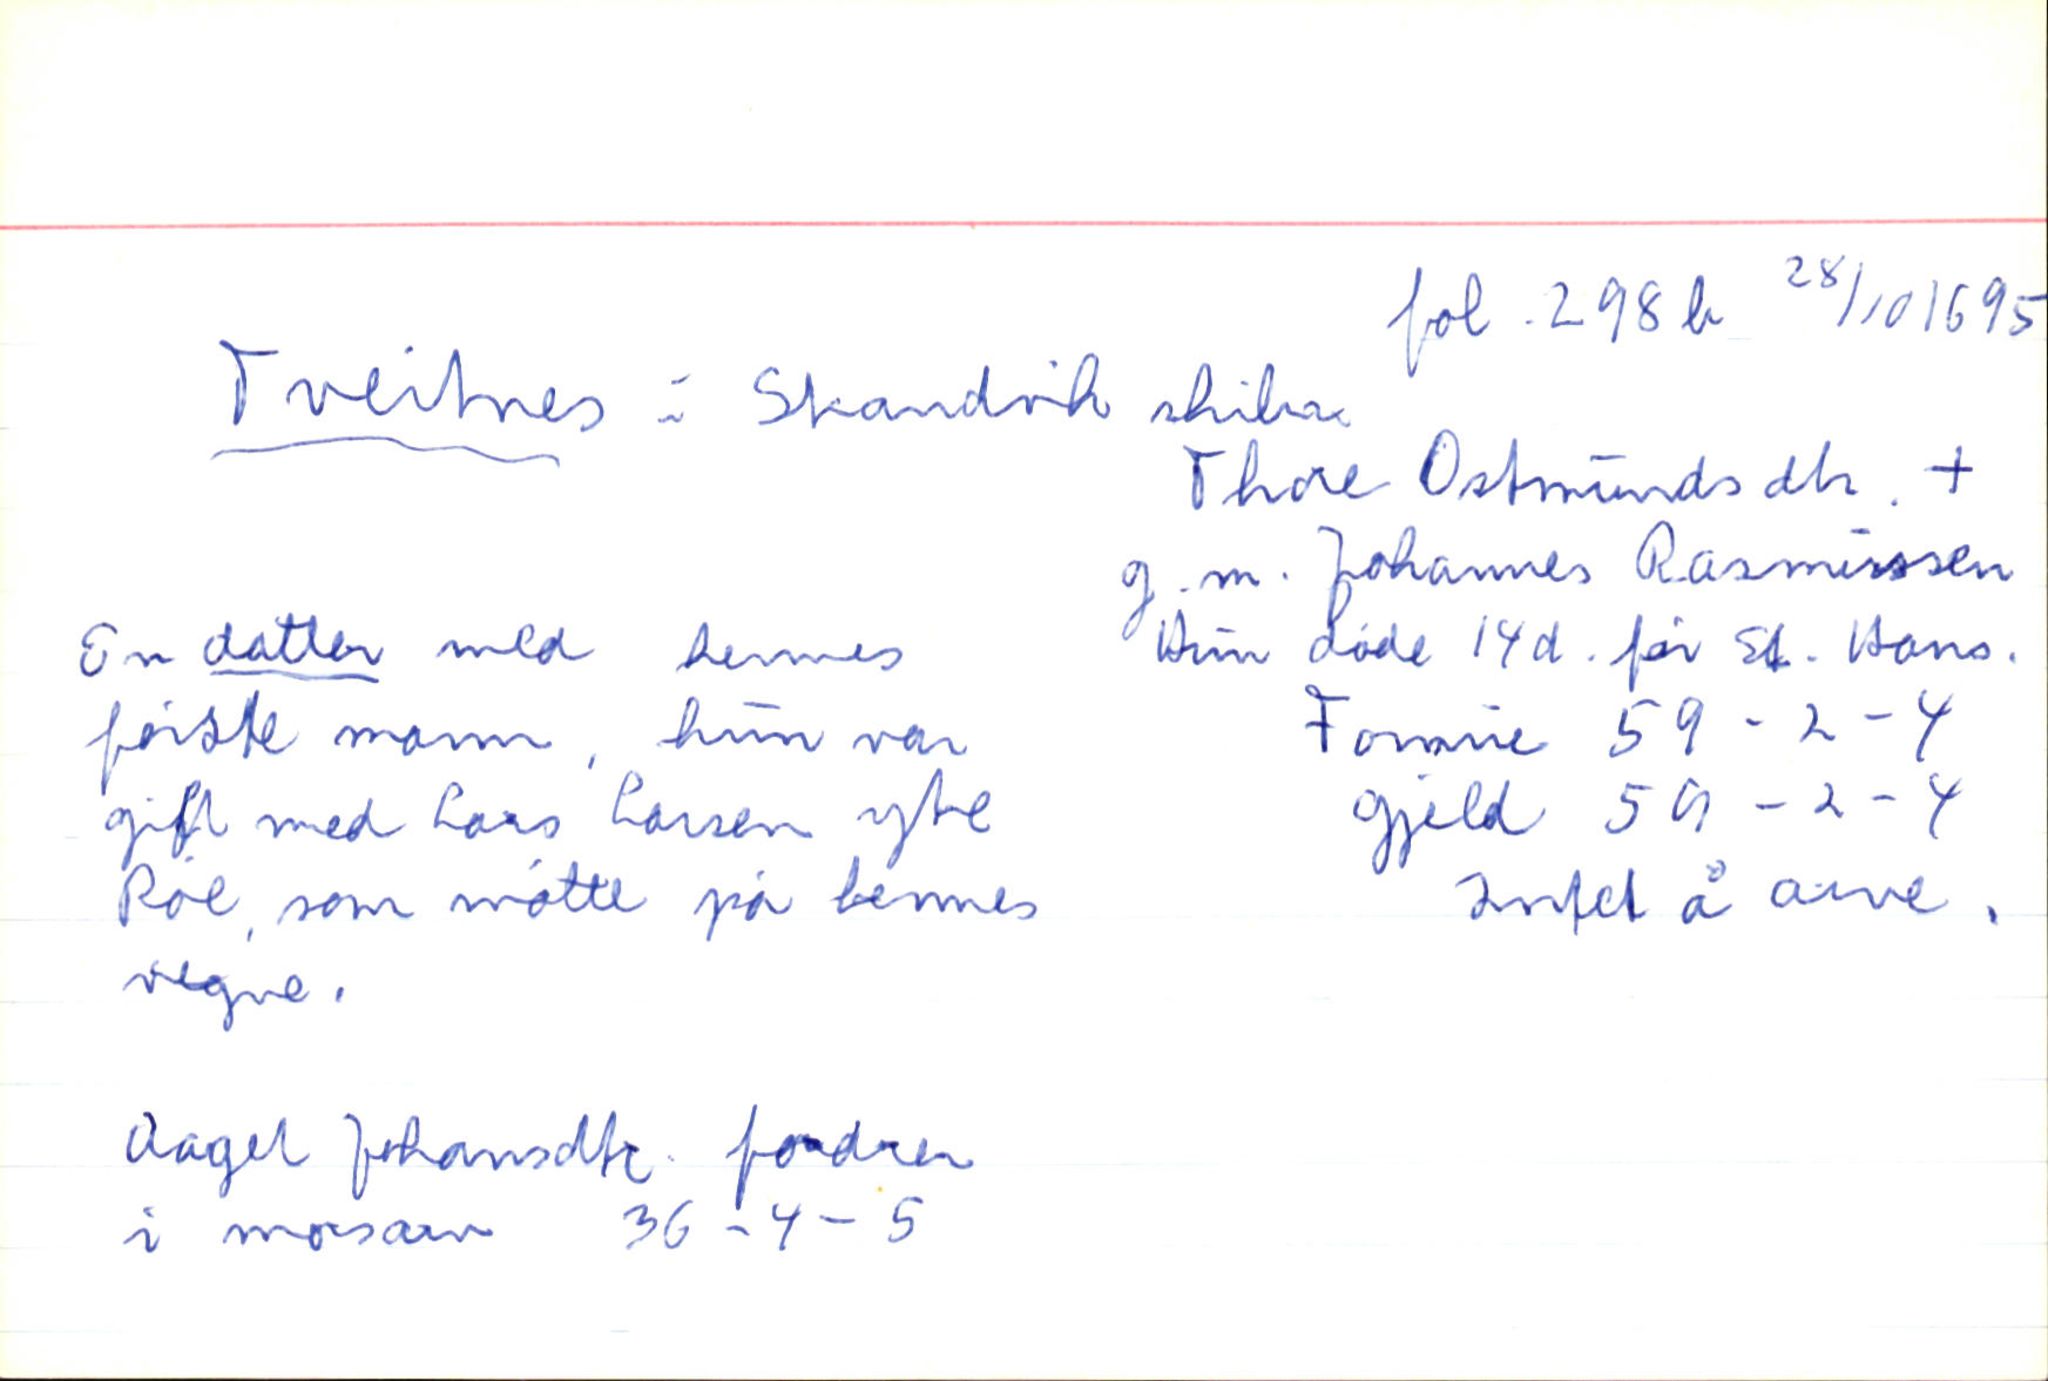 fol. 298b 28/10 1695
Tveitnes i Skandvik skibr.
Thore Ostmundsdtr. +
g.m. Johannes Rasmussen
Hun døde 14d. før St. Hans.
Formue 59-2-4
Gjeld 59-2-4
Intet å arve.
En datter med hennes
første mann, hun var
gift med Lars Larsen ytre
Røe, som møtte på hennes
vegne.
Aagel Johansdtr. fordrer
i morsarv 36-4-5